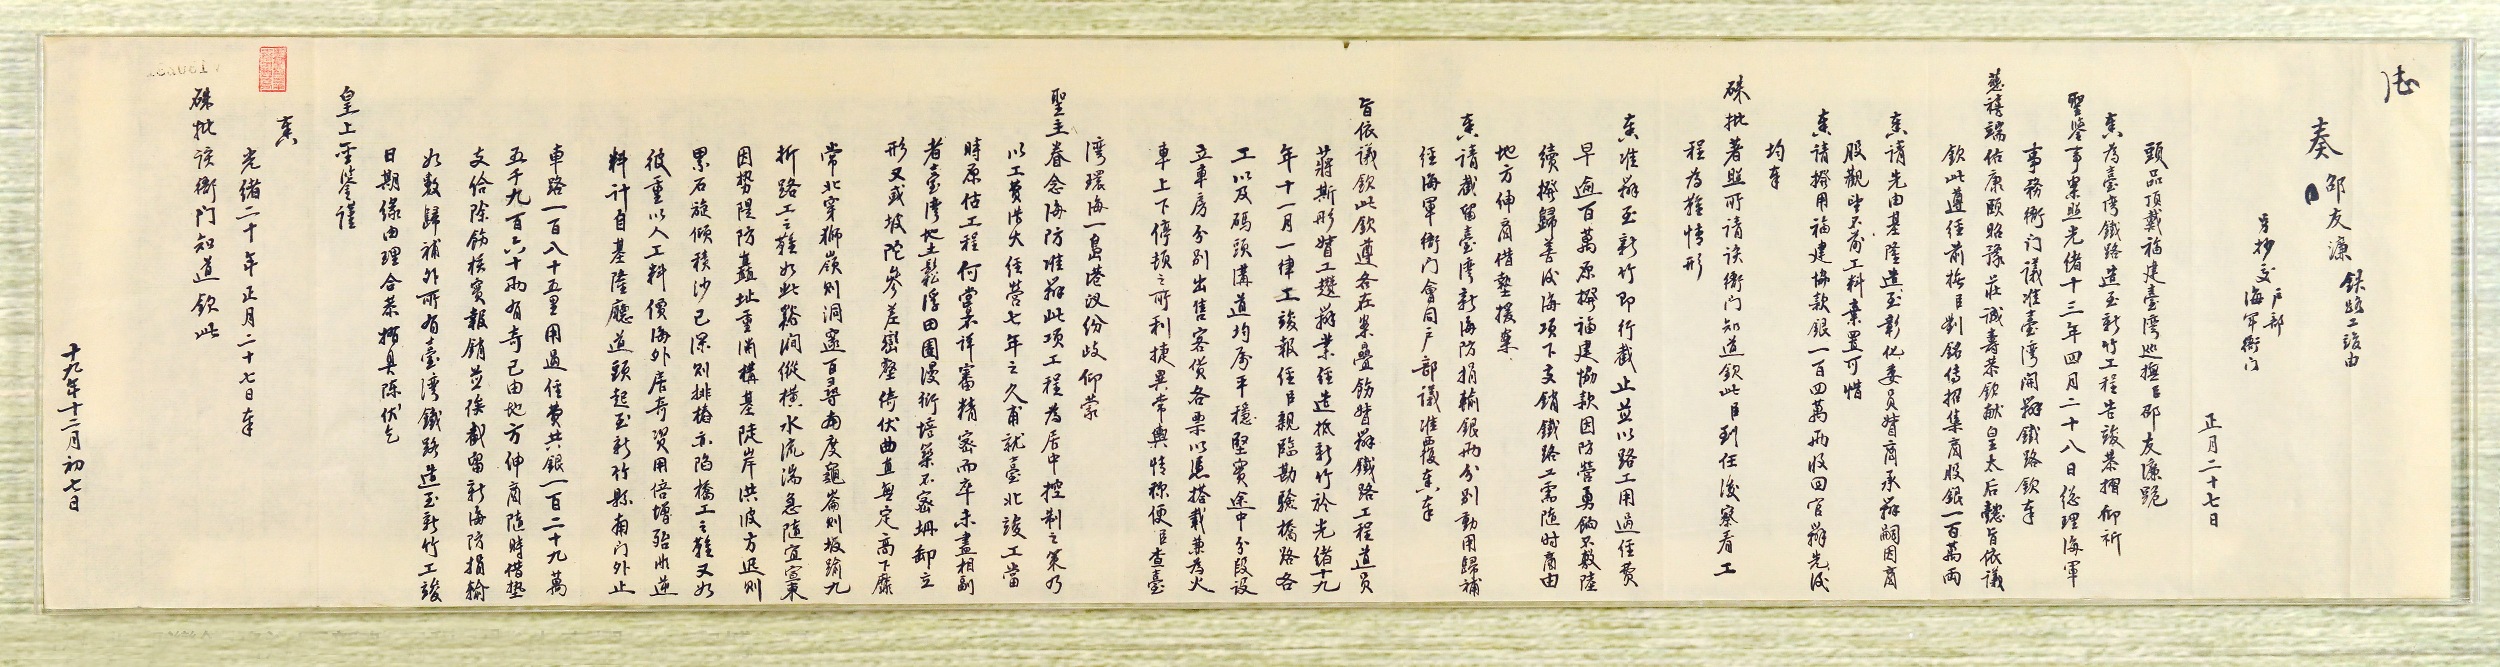 奏
邵友濂 鐵路工竣由
另抄交 戶部 海軍衙门
正月二十七日
頭品頂戴福建臺灣巡撫臣邵友濂跪
奏為臺灣鐵路造至新竹工程告竣恭摺仰祈
聖鑒事案照光緒十三年四月二十八日總理海軍
事務衙门議准臺灣開辦鐵路欽奉
慈禧端佑康頤昭豫莊誠壽恭欽獻皇太后懿旨依議
欽此遵經前撫臣劉銘傳招集商股銀一百萬兩
奏請先由基隆造至彰化委員督商承辦嗣因商
股觀望不前工料棄置可惜
奏請撥用福建協款銀一百四萬兩收回官辦先後
均奉
硃批著照所請該衙门知道欽此臣到任後察看工
程為難情形
奏准辦至新竹即行截止並以路工用過經費
早逾百萬原撥福建協款因防營勇餉不敷陸
續撥歸善後海項下支銷鐵路工需隨時商由
地方紳商借墊援案
奏請截留臺灣新海防捐輸銀兩分別動用歸補
經海軍衙门會同戶部議准覆奏奉
旨依議欽此欽遵各在案疊飭督辦鐵路工程道員
蔣斯彤督工趲辦業經造抵新竹於光緒十九
年十一月一律工竣報經臣親臨勘驗橋路各
工以及碼頭溝道均屬平穩堅實途中分段設
立車房分別出售客貨各票以憑搭載兼為火
車上下停頓之所利捷異常輿情稱便臣查臺
灣環海一島港汊紛歧仰蒙
聖主眷念海防准辦此項工程為居中控制之策乃
以工費浩大經營七年之久甫就臺北竣工當
時原估工程何嘗不詳審精密而卒未盡相副
者臺灣地土鬆浮田園漫衍培築不密坍卸立
形又或坡陀參差巒壑倚伏曲直無定高下靡
常北穿獅嶺則洞邃百尋南度龜崙則坂踰九
折路工之難如此谿澗縱橫水流湍急隨宜窐
因勢隄防矗址重淵構基陡岸洪波方退則
累石旋傾積沙已深則排樁亦陷橋工之難又如
彼重以人工料價海外居奇資用倍增殆非逆
料計自基隆廳道頭起至新竹縣南门外止
車路一百八十五里用過經費共銀一百二十九萬
五千九百六十兩有奇已由地方紳商隨時借墊
支給除飭核實報銷並俟截留新海防捐輸
如數歸補外所有臺灣鐵路造至新竹工竣
日期緣由理合恭摺具陳伏乞
皇上聖鑒謹
奏
光緒二十年正月二十七日奉
硃批該衙门知道欽此
十九年十二月初七日